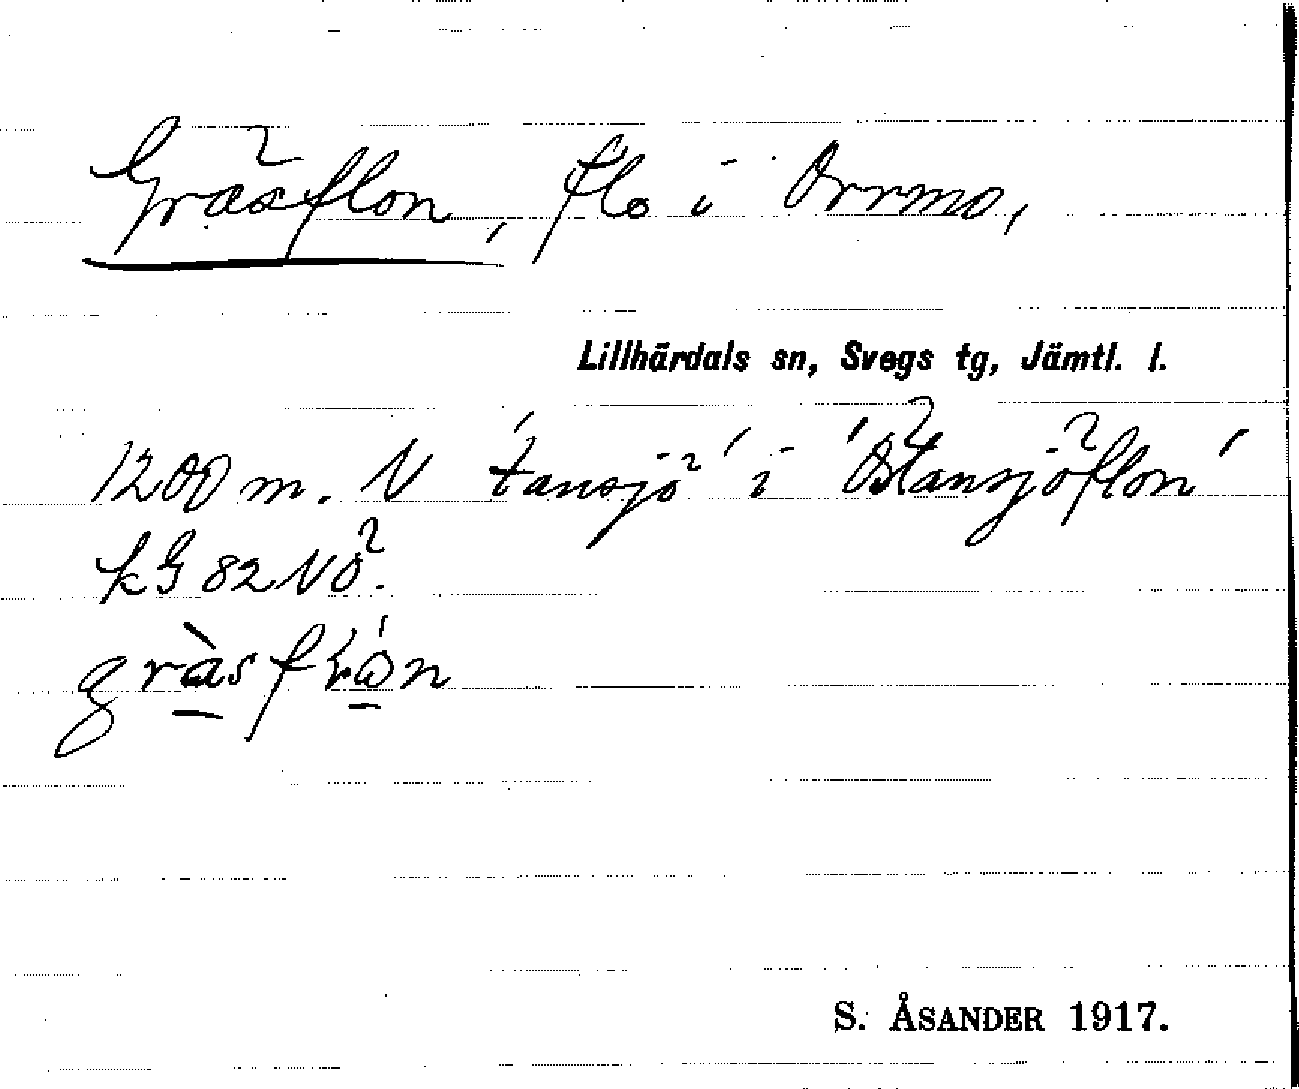 Gräsflon, flo i Orrmo,
Lillhärdals sn, Svegs tg, Jämtl. l.
1200 m. N 'tansjö' i 'Östansjöflon'
kG 82 NÖ.
S. ÅSANDER 1917.